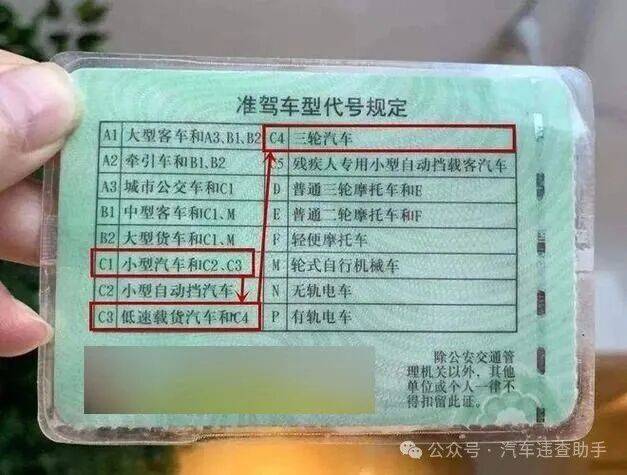 准驾车型代号规定
A1 大型客车和A3、B1、B2 C4 三轮汽车
A2 牵引车和B1、B2 C5 残疾人专用小型自动挡载客汽车
A3 城市公交车和C1 D 普通三轮摩托车和E
B1 中型客车和C1、M E 普通二轮摩托车和F
B2 大型货车和C1、M F 轻便摩托车
C1 小型汽车和C2、C3 M 轮式自行机械车
C2 小型自动挡汽车 N 无轨电车
C3 低速载货汽车和C4 P 有轨电车
除公安交通管
理机关以外,其他
单位或个人一律不
得扣留此证。
公众号·汽车违查助手